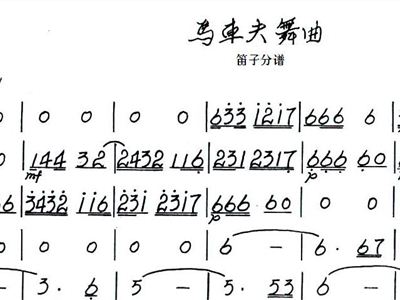 马車夫舞曲
笛子分谱
0 | 0 0 | 0 0 | 633 1217 | 666 6
0 | 144 32 | 2432 116 | 231 2317 | 666 60
6 | 3432 116 | 231 2317 | 666 60 | 0 0
0 | 0 0 | 0 0 | 6 – | 6· 67
– | 3· 6 | 5 – | 5· 53 | 6 –